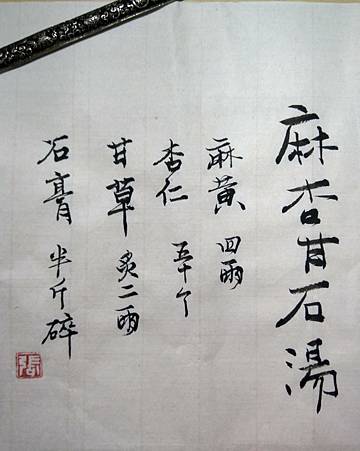 麻杏甘石湯
麻黃 四兩
杏仁 五十个
甘草 炙二兩
石膏 半斤碎
張